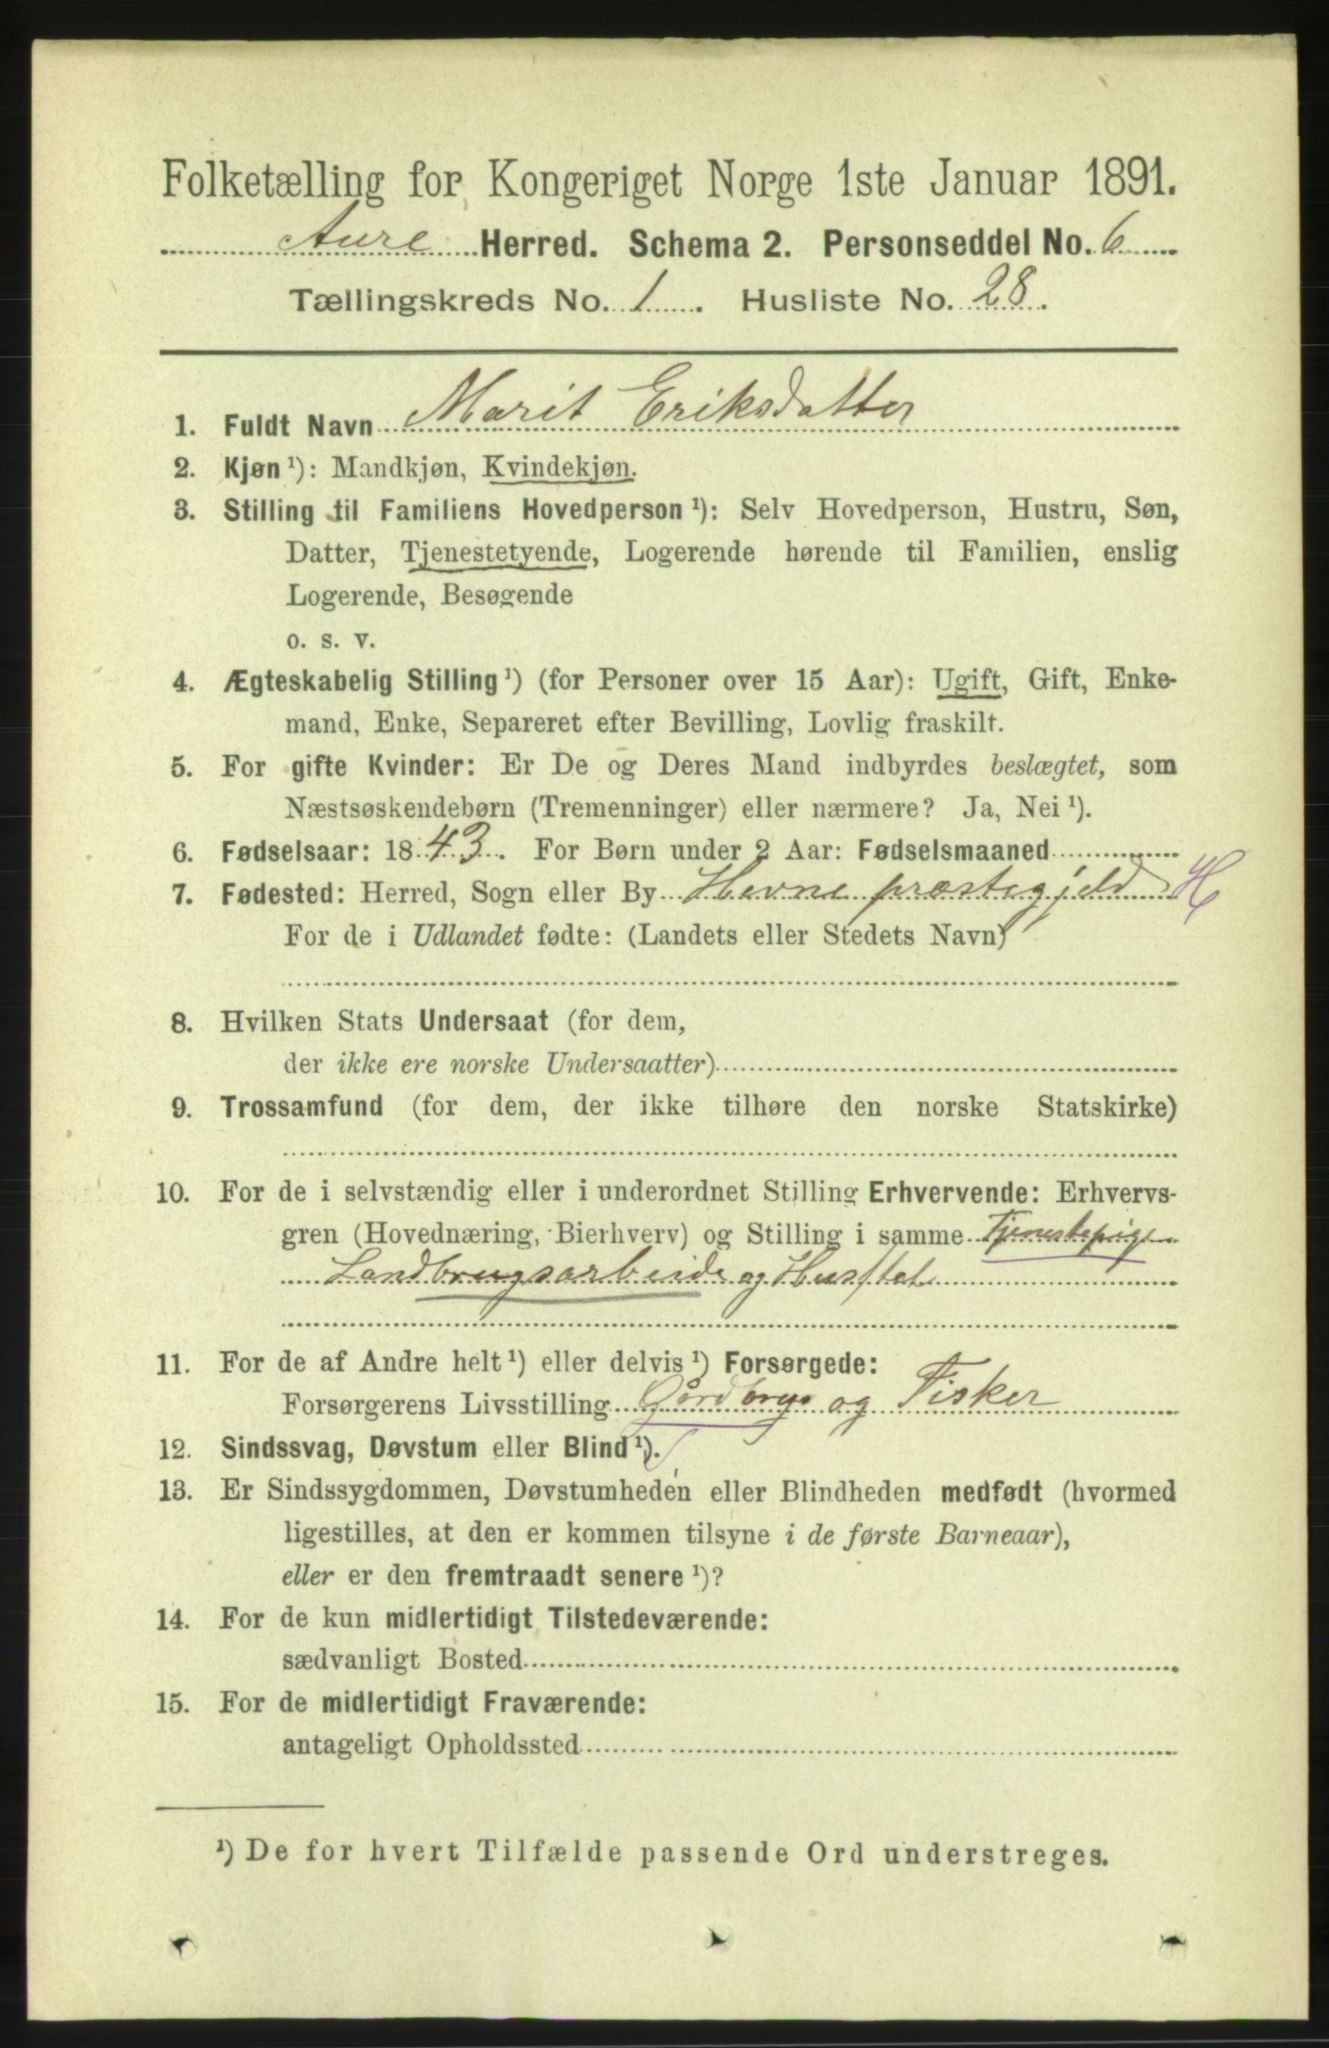 Folketælling for Kongeriget Norge 1ste Januar 1891.
Aure Herred. Schema 2. Personseddel No. 6
Tællingskreds No. 1. Husliste No. 28.
1. Fuldt Navn Marit Eriksdatter
2. Kjøn ¹): Mandkjøn, Kvindekjøn.
3. Stilling til Familiens Hovedperson ¹): Selv Hovedperson, Hustru, Søn,
Datter, Tjenestetyende, Logerende hørende til Familien, enslig
Logerende, Besøgende
o. s. v.
4. Ægteskabelig Stilling ¹) (for Personer over 15 Aar): Ugift, Gift, Enke-
mand, Enke, Separeret efter Bevilling, Lovlig fraskilt.
5. For gifte Kvinder: Er De og Deres Mand indbyrdes beslægtet, som
Næstsøskendebørn (Tremenninger) eller nærmere? Ja, Nei ¹).
6. Fødselsaar: 1843. For Børn under 2 Aar: Fødselsmaaned
7. Fødested: Herred, Sogn eller By Hevne præstegjeld H
For de i Udlandet fødte: (Landets eller Stedets Navn)
8. Hvilken Stats Undersaat (for dem,
der ikke ere norske Undersaatter)
9. Trossamfund (for dem, der ikke tilhøre den norske Statskirke)
10. For de i selvstændig eller i underordnet Stilling Erhvervende: Erhvervs-
gren (Hovednæring, Bierhverv) og Stilling i samme Tjenestepige
Landbrugsarbeide og Husstel
11. For de af Andre helt ¹) eller delvis ¹) Forsørgede:
Forsørgerens Livsstilling Gårdbrugr og Fisker
12. Sindssvag, Døvstum eller Blind ¹).
13. Er Sindssygdommen, Døvstumheden eller Blindheden medfødt (hvormed
ligestilles, at den er kommen tilsyne i de første Barneaar),
eller er den fremtraadt senere ¹)?
14. For de kun midlertidigt Tilstedeværende:
sædvanligt Bosted
15. For de midlertidigt Fraværende:
antageligt Opholdssted
¹) De for hvert Tilfælde passende Ord understreges.